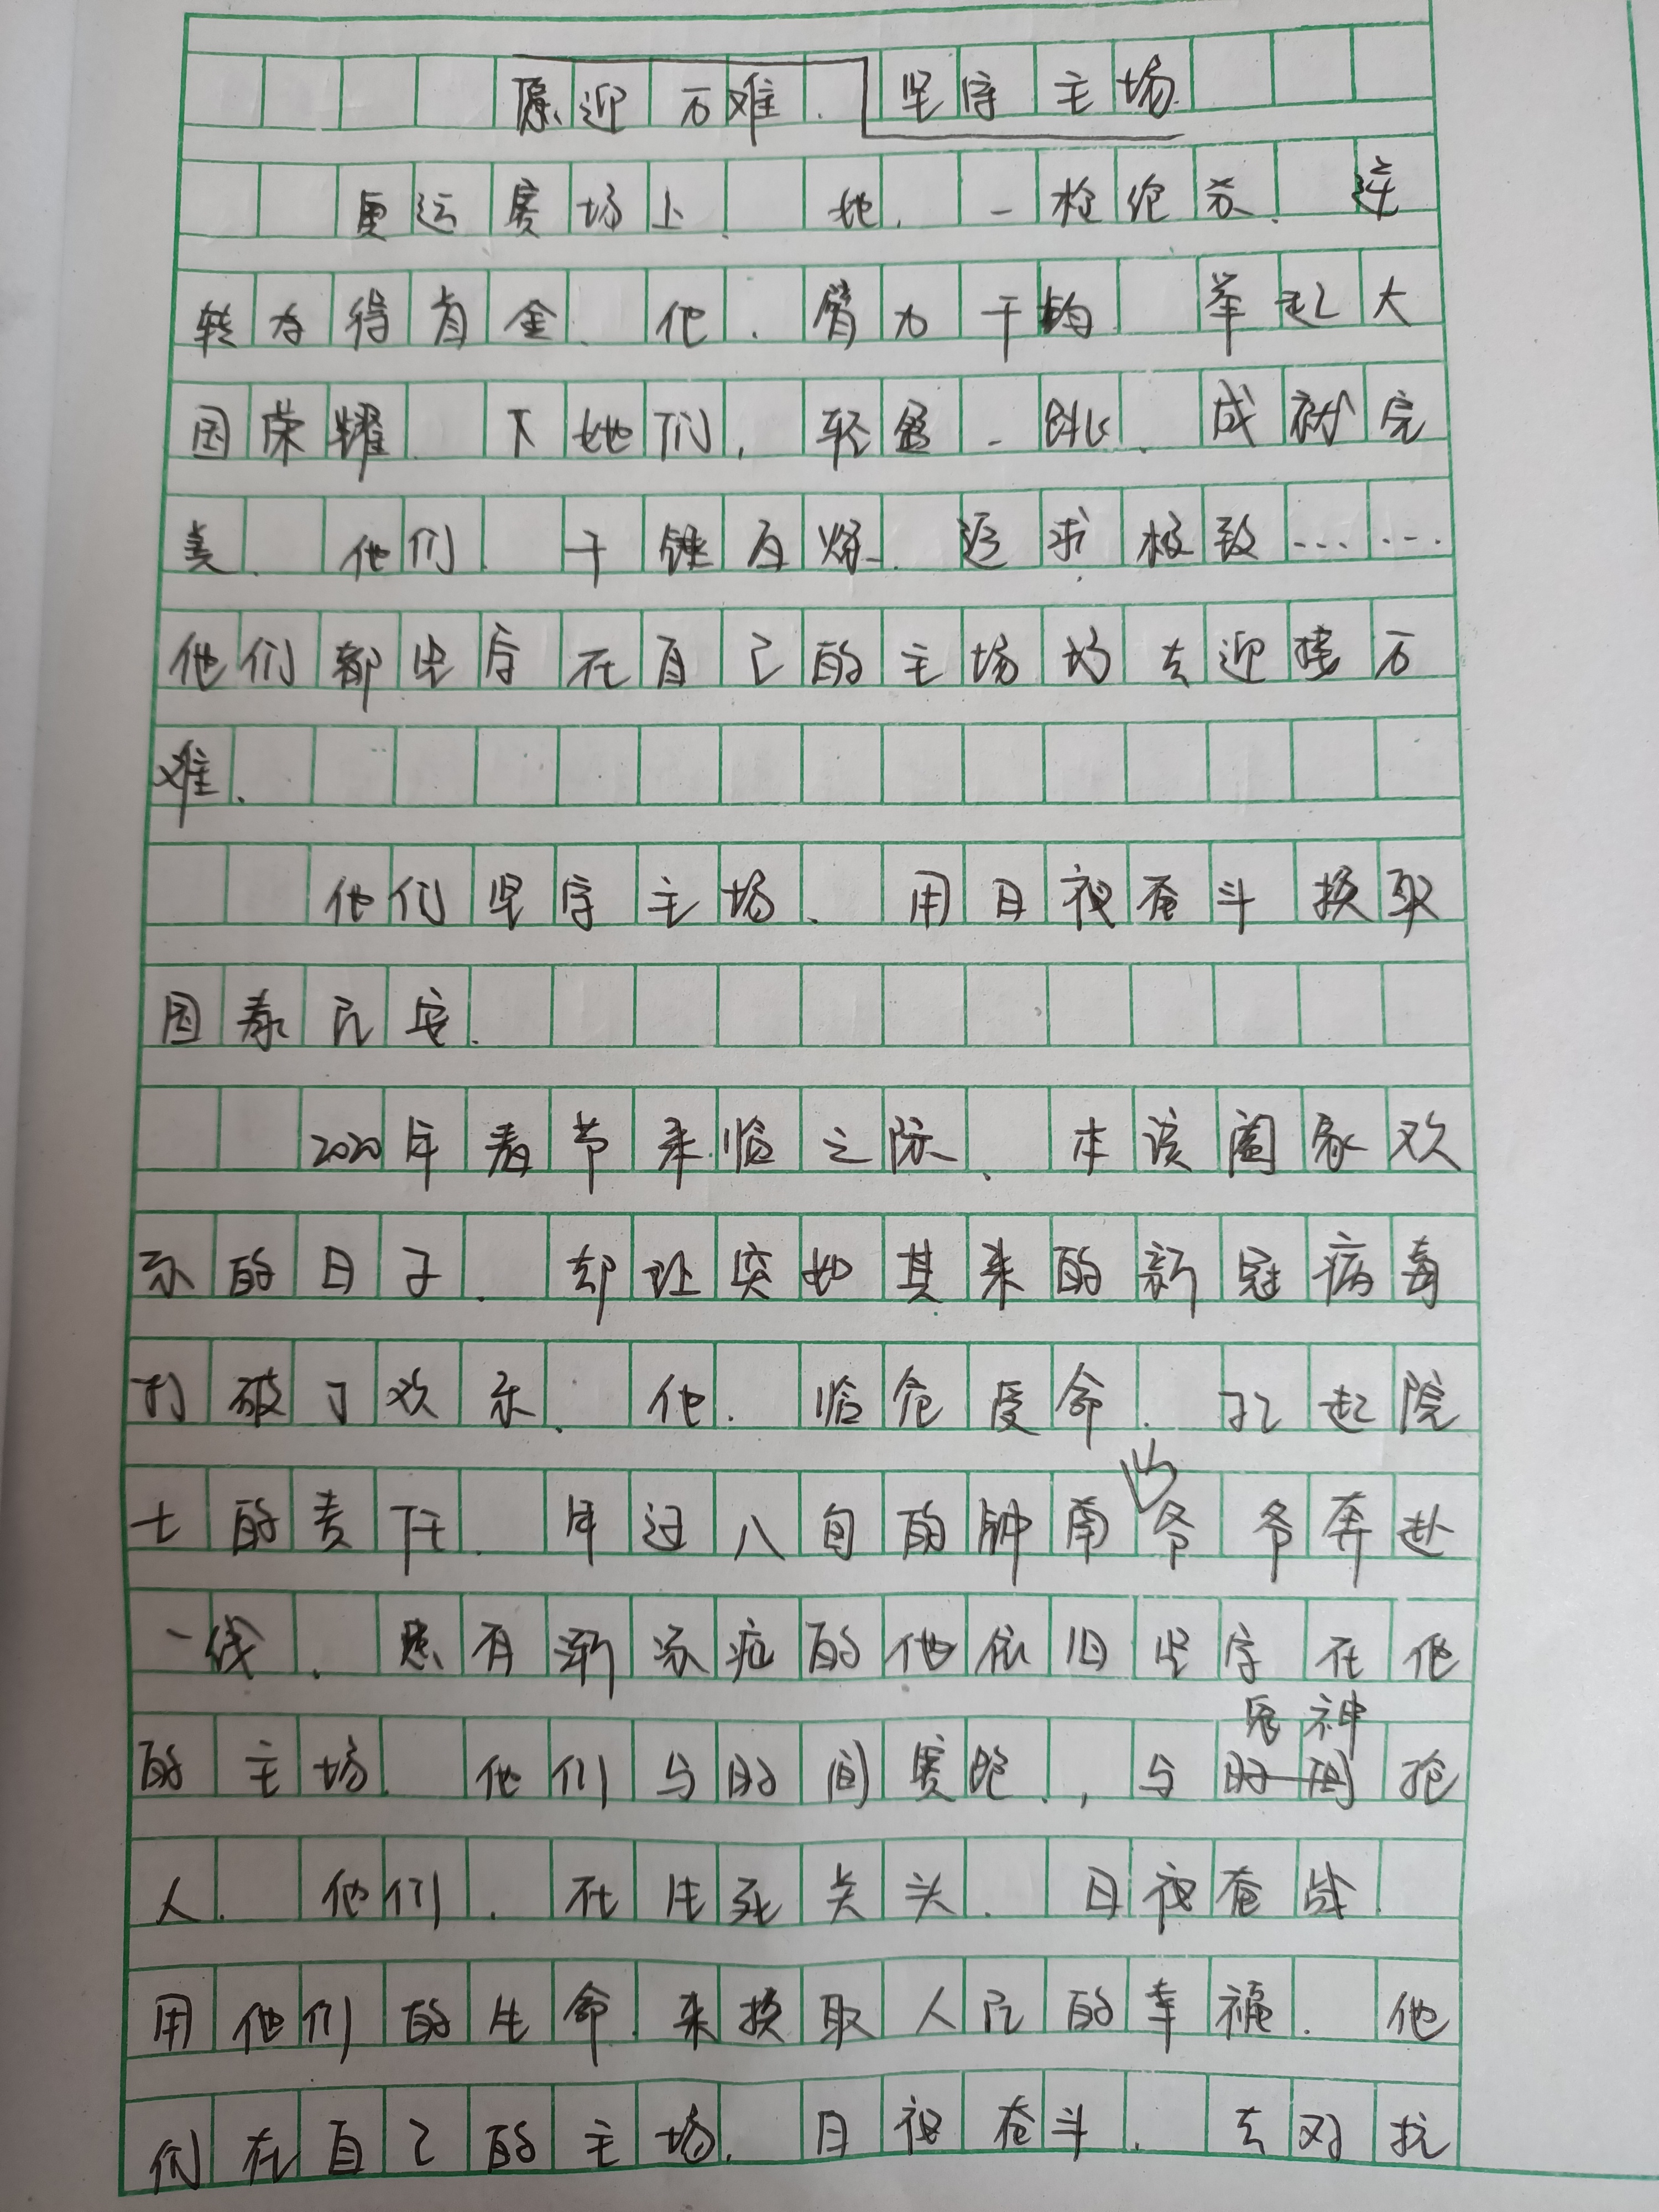 愿迎万难，坚守主场
奥运赛场上，她，一枪绝杀，逆
转夺得首金，他，臂力千钧，举起大
国荣耀，下她们，轻盈一跳，成就完
美，他们，千锤百炼，追求极致……
他们都坚守在自己的主场去迎接万
难。
他们坚守主场，用日夜奋斗换取
国泰民安。
2020年春节来临之际，本该阖家欢
乐的日子，却让突如其来的新冠病毒
打破了欢乐，他，临危受命，扛起院
士的责任，年过八旬的钟南山爷爷奔赴
一线，患有渐冻症的他依旧坚守在他
的主场，他们与时间赛跑，与死神抢
人，他们，在生死关头，日夜奋战，
用他们的生命来换取人民的幸福，他
们在自己的主场，日夜奋斗，去对抗